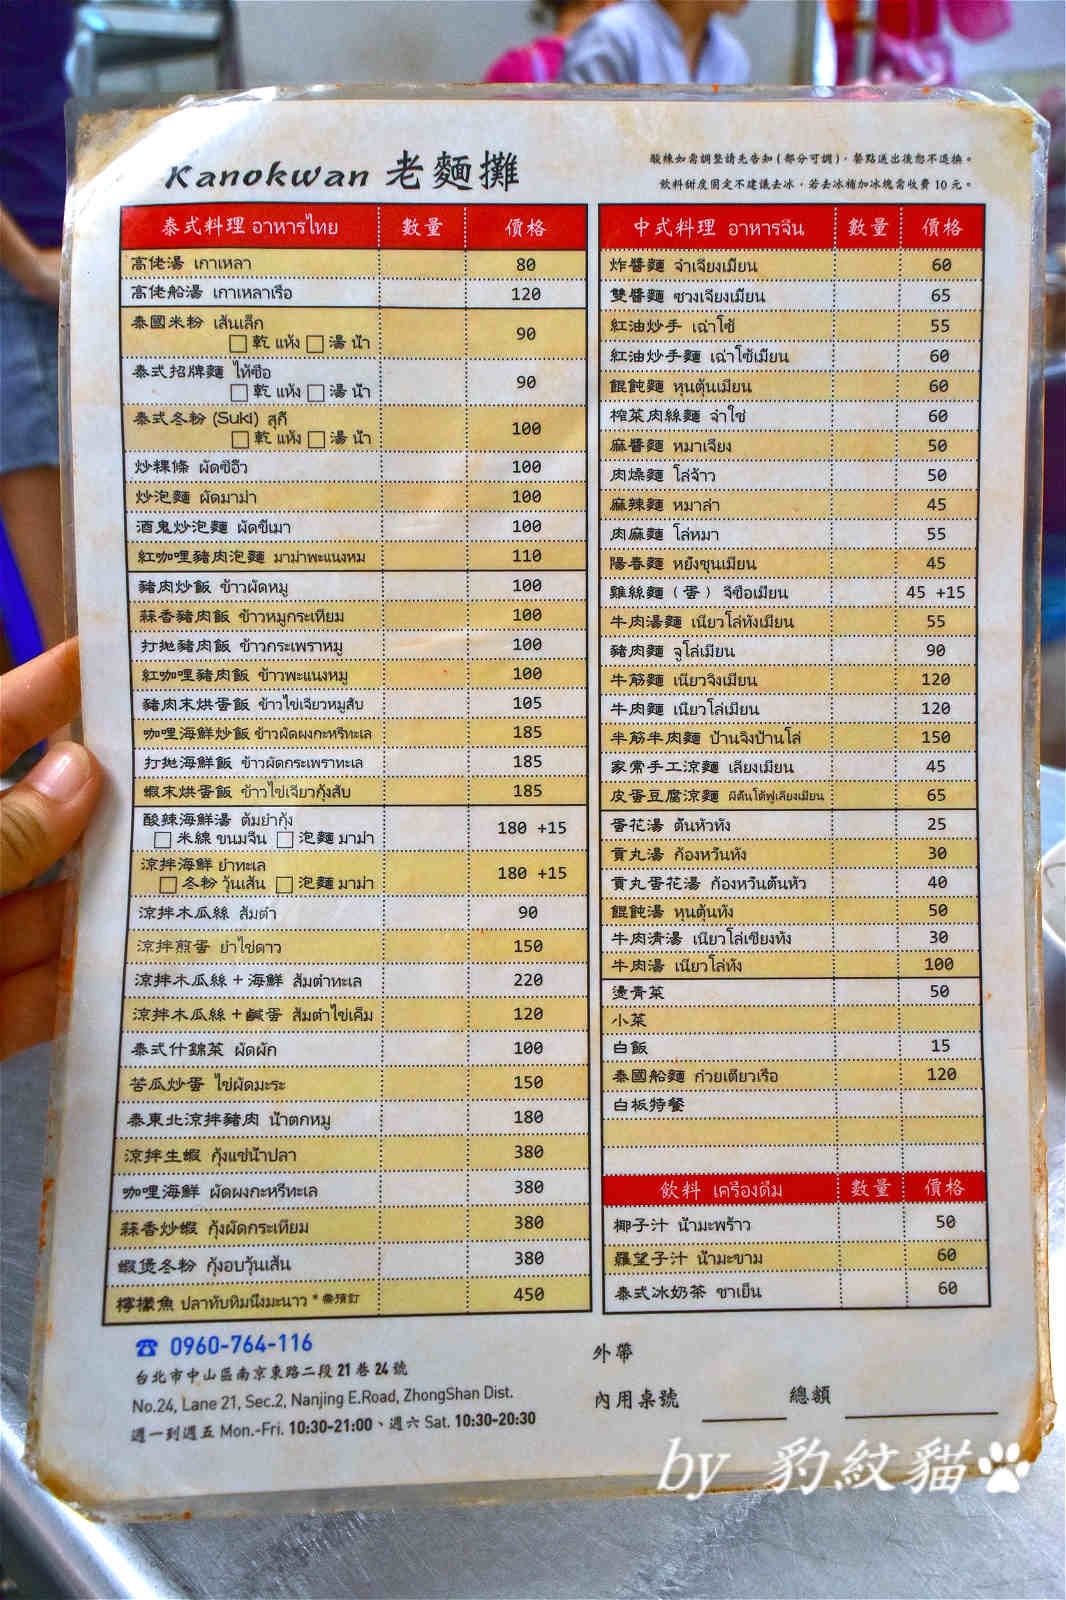 Kanokwan 老麵攤
酸辣如需調整請先告知(部分可調)，餐點送出後恕不退換。
飲料甜度固定不建議去冰，若去冰補加冰塊需收費 10 元。
泰式料理 อาหารไทย 數量 價格
高佬湯 เกาเหลา 80
高佬船湯 เกาเหลาเรือ 120
泰國米粉 เส้นเล็ก 90
□ 乾 แห้ง □ 湯 น้ำ
泰式招牌麵 ไห้ซือ 90
□ 乾 แห้ง □ 湯 น้ำ
泰式冬粉 (Suki) สุกี้ 100
□ 乾 แห้ง □ 湯 น้ำ
炒粿條 ผัดซีอิ๊ว 100
炒泡麵 ผัดมาม่า 100
酒鬼炒泡麵 ผัดขี้เมา 100
紅咖哩豬肉泡麵 มาม่าพะแนงหม 110
豬肉炒飯 ข้าวผัดหมู 100
蒜香豬肉飯 ข้าวหมูกระเทียม 100
打拋豬肉飯 ข้าวกระเพราหมู 100
紅咖哩豬肉飯 ข้าวพะแนงหมู 100
豬肉末烘蛋飯 ข้าวไข่เจียวหมูสับ 105
咖哩海鮮炒飯 ข้าวผัดผงกะหรี่ทะเล 185
打拋海鮮飯 ข้าวผัดกระเพราทะเล 185
蝦末烘蛋飯 ข้าวไข่เจียวกุ้งสับ 185
酸辣海鮮湯 ต้มยำกุ้ง 180 +15
□ 米線 ขนมจีน □ 泡麵 มาม่า
涼拌海鮮 ยำทะเล 180 +15
□ 冬粉 วุ้นเส้น □ 泡麵 มาม่า
涼拌木瓜絲 ส้มตำ 90
涼拌煎蛋 ยำไข่ดาว 150
涼拌木瓜絲+海鮮 ส้มตำทะเล 220
涼拌木瓜絲+鹹蛋 ส้มตำไข่เค็ม 120
泰式什錦菜 ผัดผัก 100
苦瓜炒蛋 ไข่ผัดมะระ 150
泰東北涼拌豬肉 น้ำตกหมู 180
涼拌生蝦 กุ้งแช่น้ำปลา 380
咖哩海鮮 ผัดผงกะหรี่ทะเล 380
蒜香炒蝦 กุ้งผัดกระเทียม 380
蝦煲冬粉 กุ้งอบวุ้นเส้น 380
檸檬魚 ปลาทับทิมนึ่งมะนาว *需預訂 450
中式料理 อาหารจีน 數量 價格
炸醬麵 จำเจียงเมียน 60
雙醬麵 ซวงเจียงเมียน 65
紅油炒手 เฉ่าโซ้ 55
紅油炒手麵 เฉ่าโซ้เมียน 60
餛飩麵 หุนตุ้นเมียน 60
榨菜肉絲麵 จำใช่ 60
麻醬麵 หมาเจียง 50
肉燥麵 โล่จ้าว 50
麻辣麵 หมาล่า 45
肉麻麵 โล่หมา 55
陽春麵 หยังชุนเมียน 45
雞絲麵 ( 蛋 ) จีซือเมียน 45 +15
牛肉湯麵 เนียวโล่ทังเมียน 55
豬肉麵 จูโล่เมียน 90
牛筋麵 เนียวจิงเมียน 120
牛肉麵 เนียวโล่เมียน 120
半筋半肉麵 ป้านจิงป้านโล่ 150
家常手工涼麵 เลียงเมียน 45
皮蛋豆腐涼麵 ผีตันโต้ฟูเลียงเมียน 65
蛋花湯 ต้นหัวทัง 25
貢丸湯 ก้องหวันทัง 30
貢丸蛋花湯 ก้องหวันตันหัว 40
餛飩湯 หุนตุ้นทัง 50
牛肉清湯 เนียวโล่เชียงทัง 30
牛肉湯 เนียวโล่ทัง 100
燙青菜 50
小菜
白飯 15
泰國船麵 ก๋วยเตียวเรือ 120
白板特餐
飲料 เครื่องดื่ม 數量 價格
椰子汁 น้ำมะพร้าว 50
羅望子汁 น้ำมะขาม 60
泰式冰奶茶 ชาเย็น 60
☎ 0960-764-116
台北市中山區南京東路二段 21 巷 24 號
No.24, Lane 21, Sec.2, Nanjing E.Road, ZhongShan Dist.
週一到週五 Mon.-Fri. 10:30-21:00、週六 Sat. 10:30-20:30
外帶
內用桌號 ______ 總額 ______
by 豹紋貓